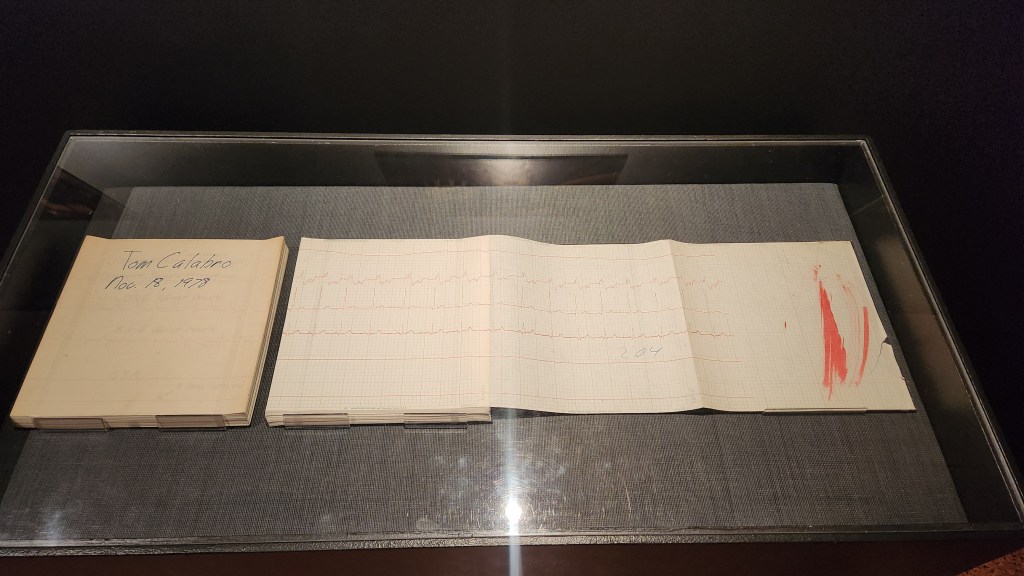 Tom Calabro
Nov. 18, 1978
204